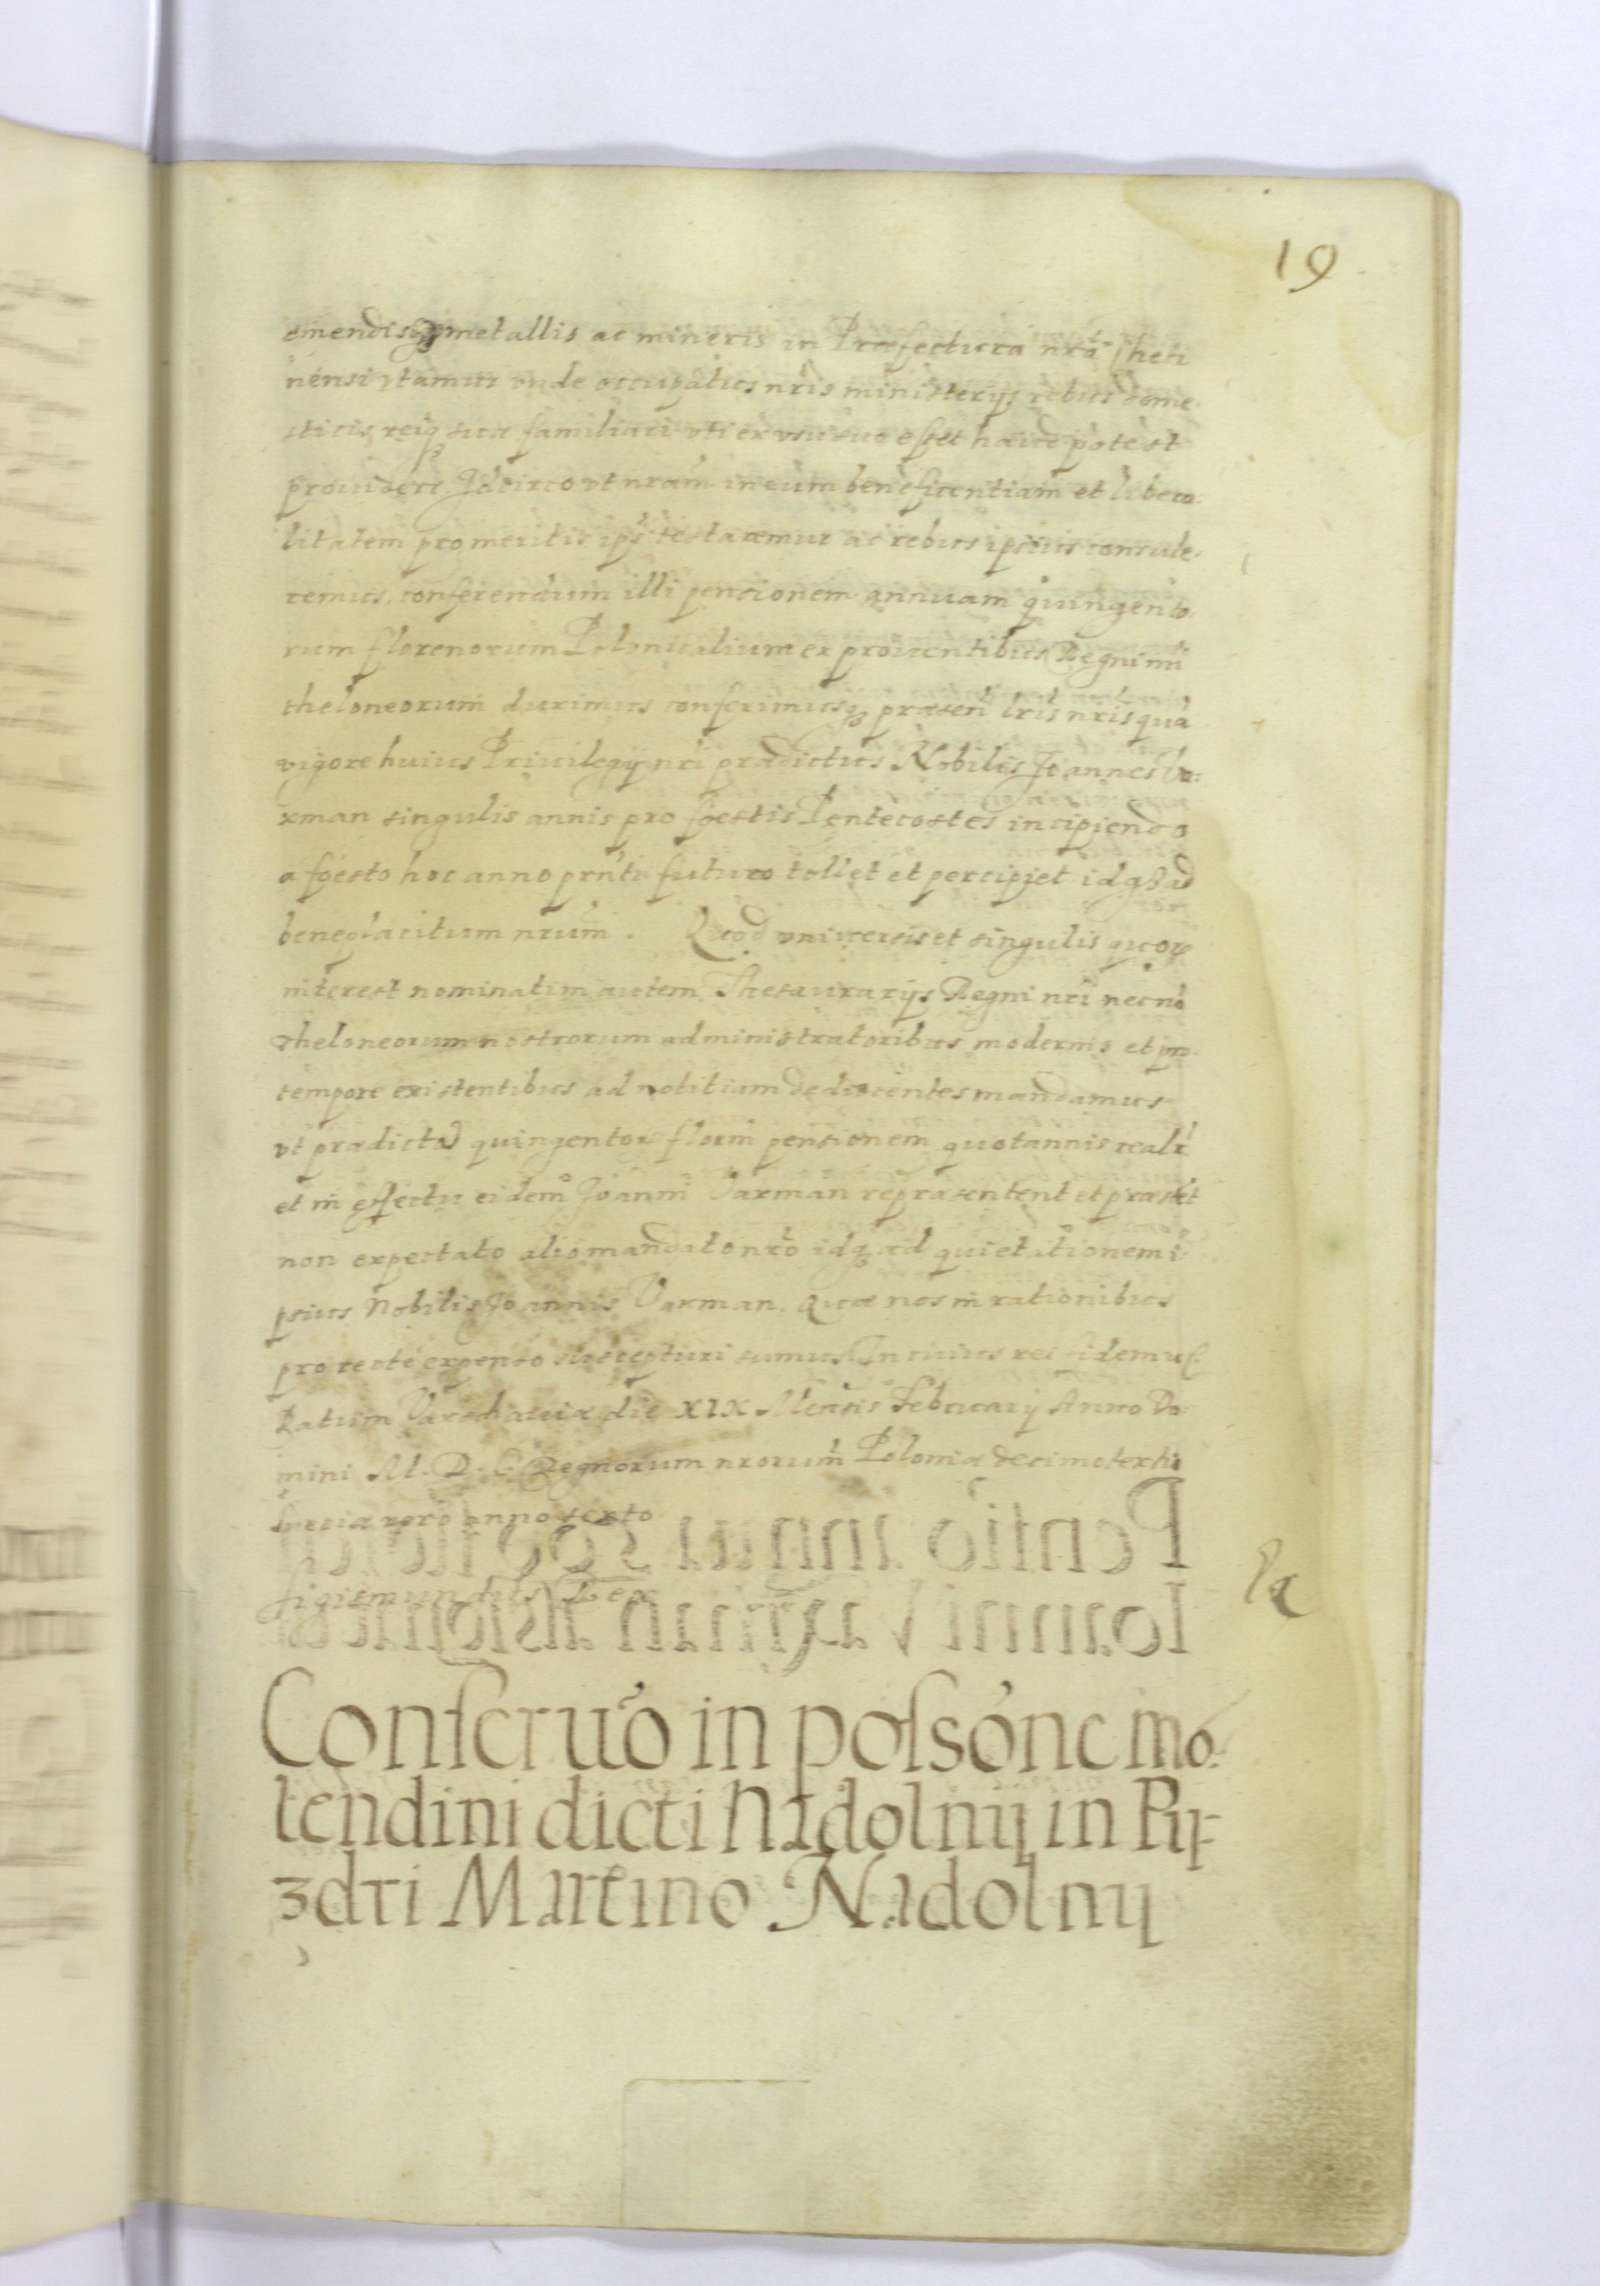 19
emendisq metallis ac mineris in Præfectura nrã Cheti
nensi vtamur vnde occupatus nris ministerijs rebus dome
sticis reiq suæ familiari vti ex vsu suo esset haud potest
prouidere. Idcirco vt nram in eum beneficentiam et libera
litatem pro meritis ips testaremur ac rebus ipsius consule
remus, conferendum illi pensionem annuam quingento
rum florenorum Polonicalium ex prouentibus Regni nri
theloneorum duximus conferimusq præsen lris nris qua
vigore huius Priuilegij nri prædictus Nobilis Joannes Va
xman singulis annis pro foestis Pentecostes incipiendo
a foesto hoc anno prnti futuro tollet et percipiet idq ad
beneplacitum nrum. Quod vniuersis et singulis quor
interest nominatim autem Thesaurarijs Regni nri necno
theloneorum nostrorum administratoribus modernis et pro
tempore existentibus ad notitiam deducentes mandamus
vt prædictã quingentor florm pensionem quotannis realr
et in effectu eidem Joanni Vaxman repræsentent et præstet
non expectato alio mandato nro idq ad quietationem i
psius Nobilis Joannis Vaxman. Quæ nos in rationibus
pro recte expenso suscepturi sumus. In cuius rei fidem
Datum Varschauiæ die XIX Mensis Februarij Anno Do
mini M.D.C. Regnorum nrorum Poloniæ decimotertio
Sueciæ vero anno sexto
Sigismundus Rex
Conseruão in possóne mo
lendini dicti Nadolnij in Pij
zdri Martino Nadolnij